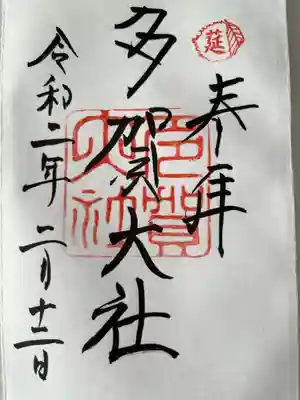 延
奉拝
多賀大社
多賀大社
令和二年二月十二日